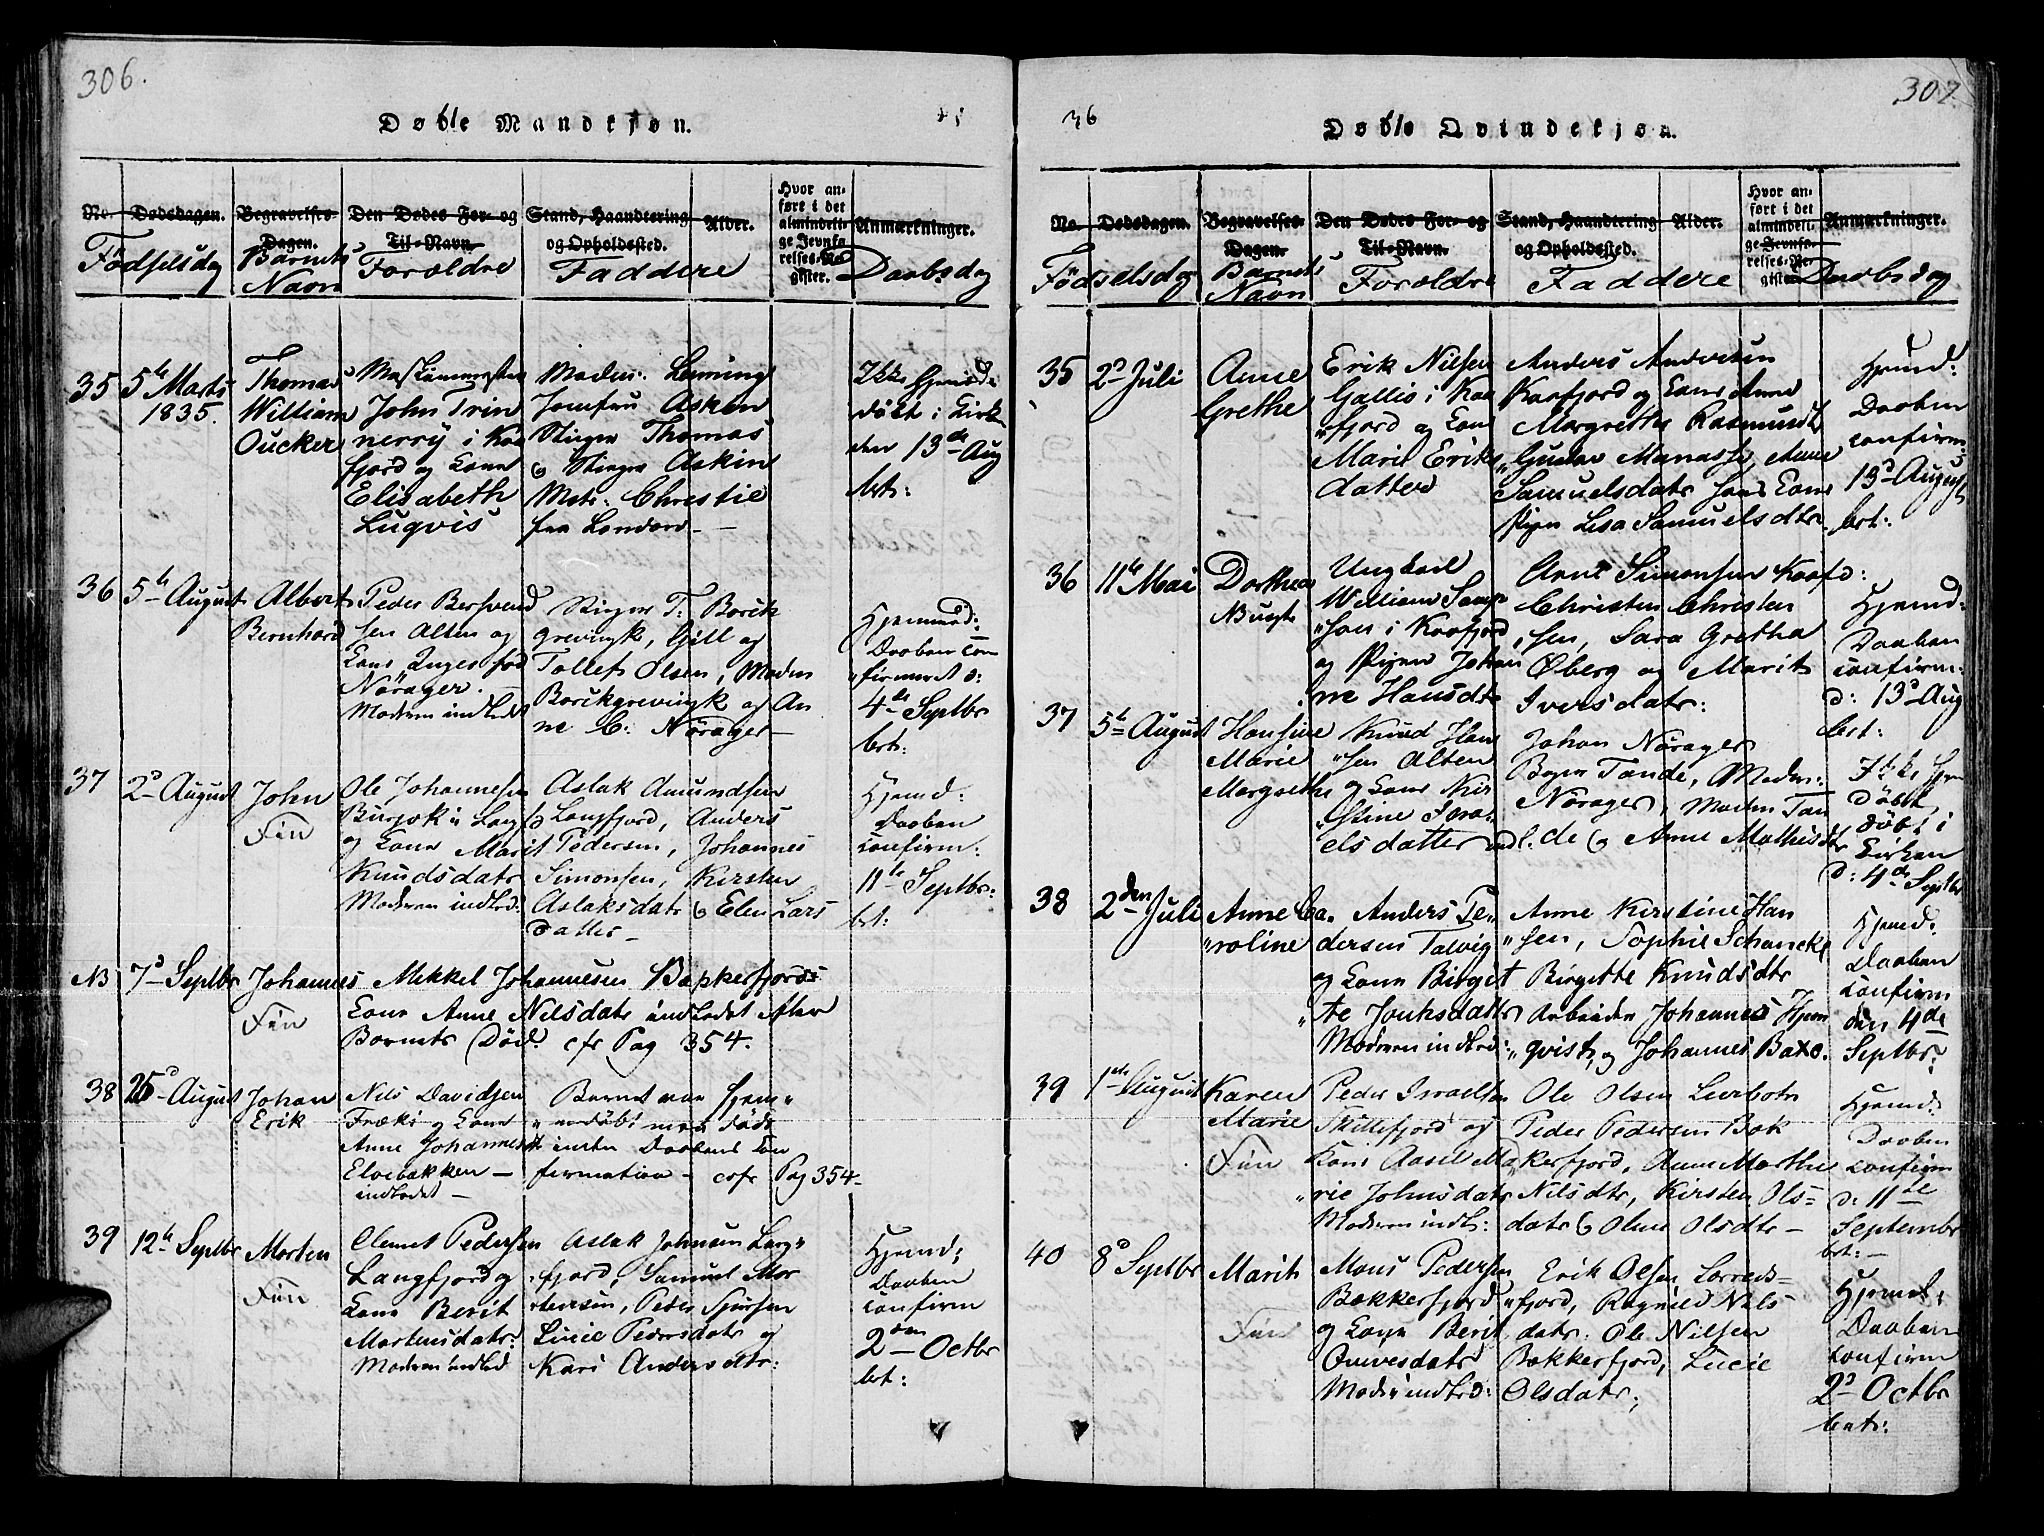 306.
Døde Mandkjøn.
No. Dødsdagen. Begravelses-Dagen. Den Dødes For- og Til-Navn. Stand, Haandtering og Opholdssted. Alder. Hvor anført i det almindelige Jevnførelses-Register. Anmærkninger.
Födselsdag Barnets Navn Forældre Faddere Daabsdag
35 5te Marts 1835.
Thomas
William
Oucker
John Trin
nerry i Kaa
fjord og Kone
Elisabeth
Luqvis
Jomfru Asken
Stiger Thomas
og Stiger Askin
Mstr. Christie
fra London
Ikke Hjemme
döbt i Kirken
den 13de Aug
brt:
36 5te August
Albert
Bernhard
Peder
sen Alten og
Kone Inger föd
Nörager.
Moderen indledet
Stiger T. Borck
grevingk, Gjill og
Tollef Olsen, Madm
Borckgrevingk og An
ne C. Nörager
Hjemmed:
Daaben con
firmeret d:
4de Septbr
brt:
37 2d August
John
Fin
Ole Johannesen
og Kone Marit
Knudsdatr
Moderen indled:
Aslak Amundsen
Langfjord, Anders
Pedersen, Johannes
Simonsen, Kirsten
Aslaksdatr og Elen Lars
datter
Hjemd:
Daaben
confirm:
11te Septbr:
brt:
NB 7d Septbr
Johannes
Fin
Mikkel Johannesen Bakkerfjords
Kone Anne Nilsdatr indledet efter
Barnets Död. cfr Pag 354.
38 25d August
Johan
Erik
Nils Davidsen
og Kone
Anne Johannesdtr
Elvebakken
indledet
Barnet var hjem
medöbt men döde
inden Daabens Con
firmation - cfr Pag 354
39 12te Septbr
Morten
Fin
Clemet Pedersen
Langfjord og
Kone Berit
Mortensdatr:
Moderen indled
Aslak Johnsen Lang
fjord, Samuel Mor
tensen, Peder Sjursen
Lucie Pedersdatr og
Kari Andersdtr:
Hjemd:
Daaben
confirm
2den Octbr
brt:
36
307.
Døde Qvindekjøn.
No. Dødsdagen. Begravelses-Dagen. Den Dødes For- og Til-Navn. Stand, Haandtering og Opholdssted. Alder. Hvor anført i det almindelige Jevnførelses-Register. Anmærkninger.
Födselsdag Barnets Navn Forældre Faddere Daabsdag
35 2d Juli
Anne
Grethe
Erik Nilsen
Gallis i Kaa
fjord og Kone
Marie Eriks
datter
Anders Andersen
Kaafjord og Kone Anne
Margrethe Rasmusdtr
Gustav Manasse, Anne
Samuelsdatr hans Kone
Pigen Lisa Samuelsdtr.
Hjemd:
Daaben
confirm:
13d August
brt:
36 11te Mai
Dorthea
NB uægte
Ungkarl
William
sen i Kaafjord
og Pigen Johan
ne Hansdtr
Arne Simonsen Kaafd:
Christen Christen
sen, Sara Gretha
Öberg og Marit
Iversdatr:
Hjemd:
Daaben
confirm:
d: 13d Aug
brt:
37 5te August
Hansine
Marie
Margrethe
Knud Han
sen Alten
og Kone Kir
stine Isra
elsdatter indl.
Johan Nörager
Tande, Madm:
Nörager, Madm Tan
de og Anne Mathisdtr
Ikke Hjem
döbt
döbt i
Kirken
d: 4de Septbr
38 2den Juli
Anne Ca
roline
Anders Pe
dersen Talvig
og Kone Birget
te Jonksdattr
Moderen indled:
Anne Kirstine Han
sen, Sophie Schancke
Birgitte Knudsdtr
Arbeider Johannes Hjem
qvist, og Johannes Baxo.
Hjemd:
Daaben
confirm
den 4de
Septbr:
39 1ste August
Karen
Marie
Fin
Peder Israelsen
Skillefjord og
Kone Aasel Ma
rie Johnsdatr
Moderen indl:
Ole Olsen Lerbotn
Peder Pedersen Bak
kerfjord, Anne Marthe
Nilsdtr, Kirsten Ols
datr og Oline Olsdtr
Hjemd:
Daaben
confirm
d: 11te
Septembr
brt:
40 8d Septbr
Marit
Fin
Mons Pedersen
Bakkerfjord
og Kone Berit
Quivesdatr
Moder indled:
Erik Olsen Lerreds
fjord, Ragnild Nils
datr. Ole Nilsen
Bakkerfjord, Lucie
Olsdatr;
Hjemd:
Daaben
confirm
2d Octbr
brt: